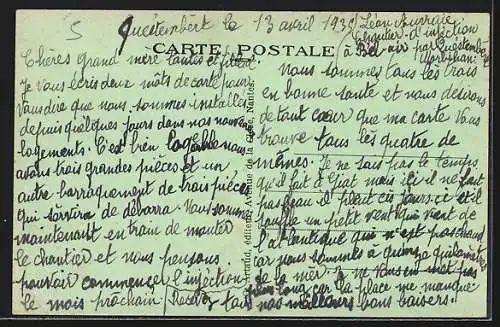 5 Questembert le 13 avril 193
Léon
Régulier d'injection
à Bel-air par Questembert
Morbihan
CARTE POSTALE
Chères grand mère tantes et
Je vous écris deux mots de carte pour
vous dire que nous sommes installés
depuis quelques jours dans nos nouveau
logements. C'est bien nous
avons trois grandes pièces et un
autre barraquement de trois pièces
qui servira de débarra. Nous sommes
maintenant en train de monter
le chantier et nous pensons
pouvoir commencer l'injection
le mois prochain. Recevez tous nos meilleurs bons baisers.
Artaud, éditeur, Avenue de la Gare, Nantes.
Nous sommes tous les trois
en bonne santé et nous désirons
de tout cœur que ma carte vous
trouve tous les quatre de
mêmes. Je ne sais pas le temps
qu'il fait à Giat mais ici il ne fait
pas beau il pleut ces jours ci et il
souffle un petit vent qui vient de
l'atlantique qui n'est pas chaud
car nous sommes à quinze quilomètres
de la mer. Je ne vous en met pas
plus long car la place me manque